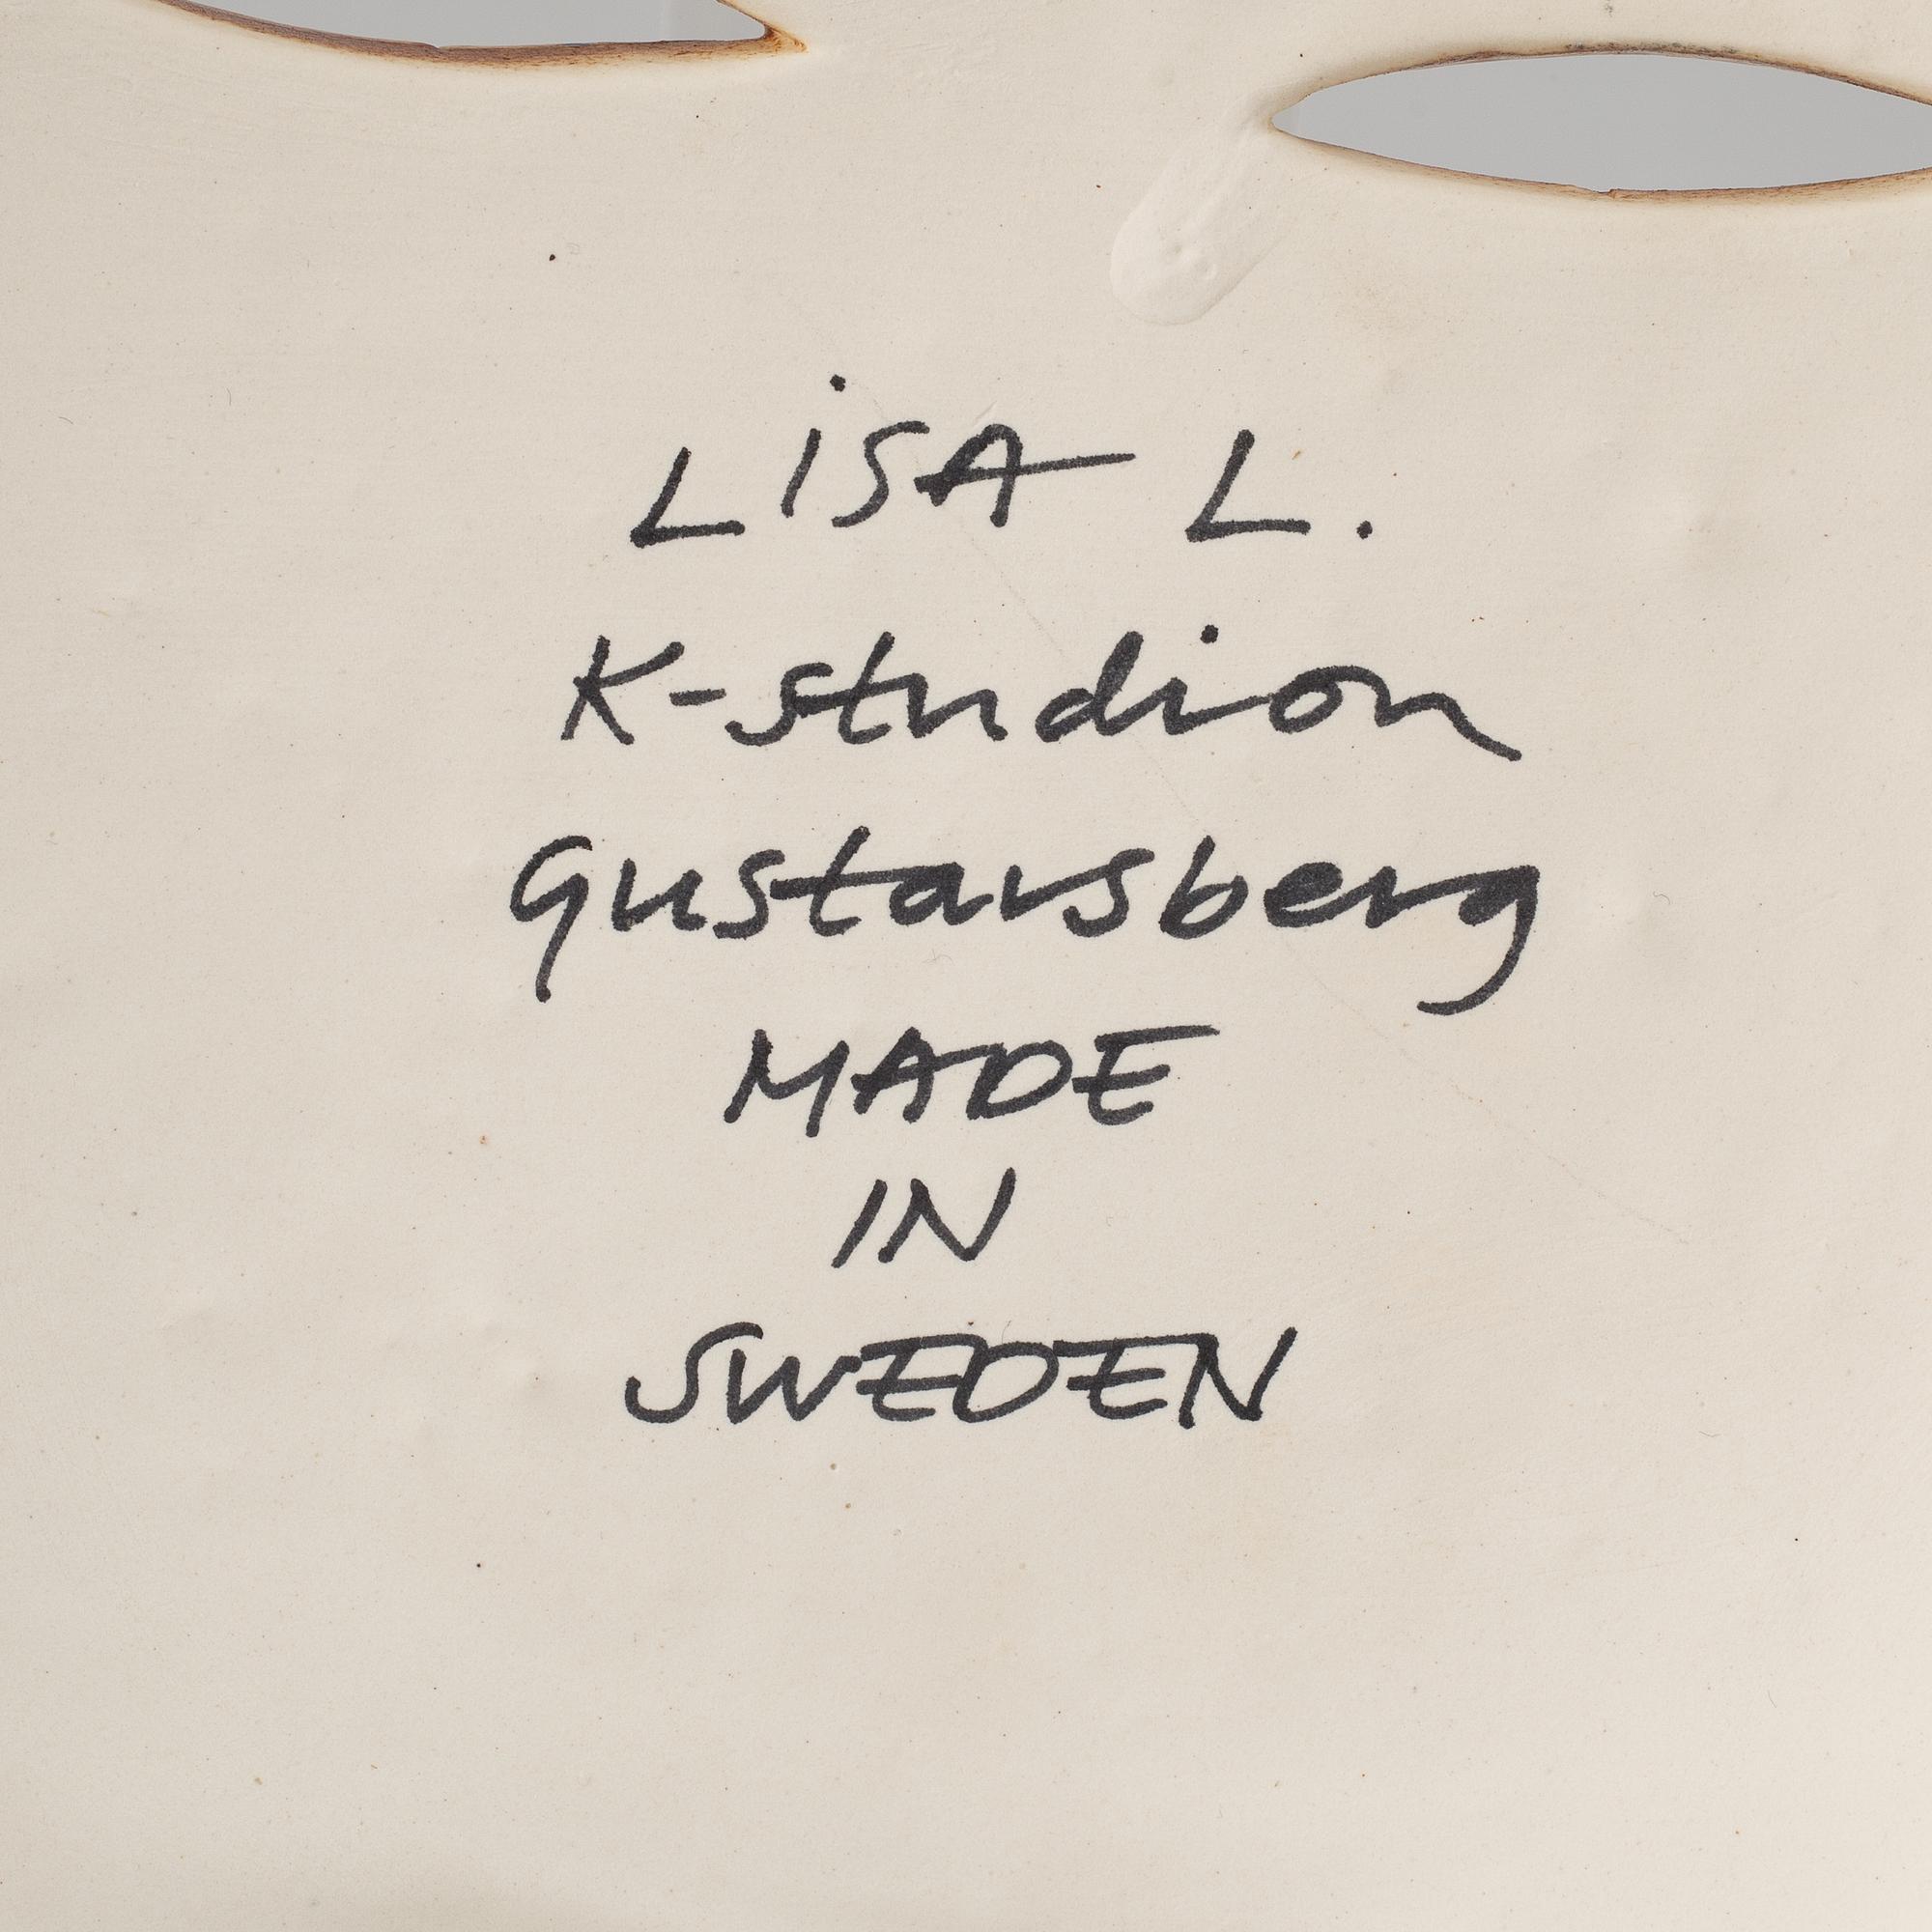 LiSA L.
K-studion
Gustavsberg
MADE
IN
SWEDEN